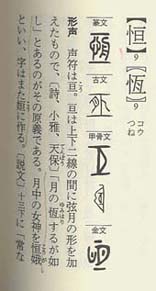 【恒】9
【恆】9
コウ
つね
篆文
古文
甲骨文
金文
形声 声符は亘。亘は上下二線の間に弦月の形を加
えたもので、〔詩、小雅、天保〕「月の恆(ゆみはり)するが如
し」とあるのがその原義である。月中の女神を恒娥(こうが)
といい、字はまた姮に作る。〔説文〕十三下に「常な